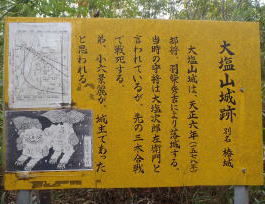 大塩山城跡 別名 椋城
大塩山城は、天正六年（一五七八）
部将 羽柴秀吉により落城する。
当時の守将は大塩次郎左衛門と
言われているが、先の三木合戦
で戦死する。
弟、小六景氣が、城主であった
と思われる。